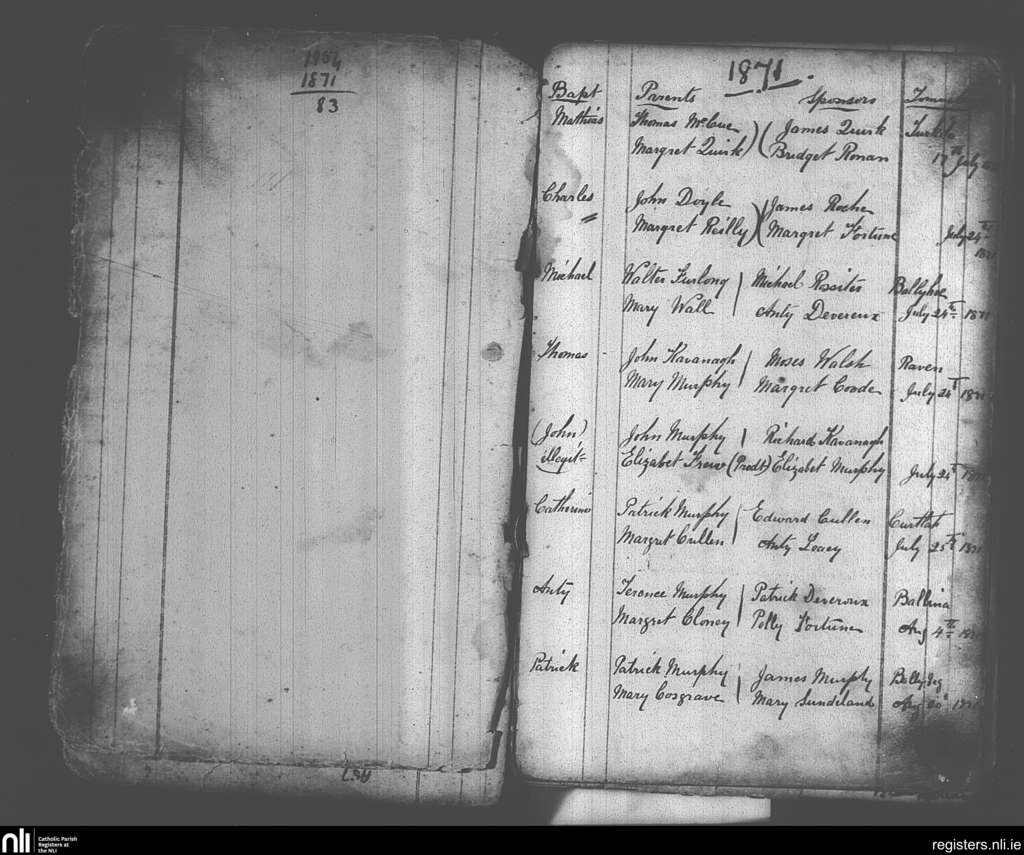 1954
1871
83
1871.
Bapt Parents Sponsors
Mathias Thomas McCue James Quirk
Margret Quirk Bridget Ronan
17th July
Charles John Doyle James Roche
Margret Reilly Margret Fortune July 24th
1871
Michael Walter Furlong Michael Rositer Ballyhoe
Mary Wall Anty Devereux July 24th 1871
Thomas John Kavanagh Moses Walsh Raven
Mary Murphy Margret Goode July 24th 1871
(John) John Murphy Richard Kavanagh
illegit- Elizabet (Prodt) Elizabet Murphy July 24th 1871
Catherine Patrick Murphy Edward Cullen Curtlah
Margret Cullen Anty Leacy July 25th 1871
Anty Terence Murphy Patrick Deveroux Ballina
Margret Cloney Polly Fortune Aug 4th 1871
Patrick Patrick Murphy James Murphy
Mary Cosgrave Mary Sunderland Aug 20th 1871
nli Catholic Parish
Registers at
the NLI
registers.nli.ie